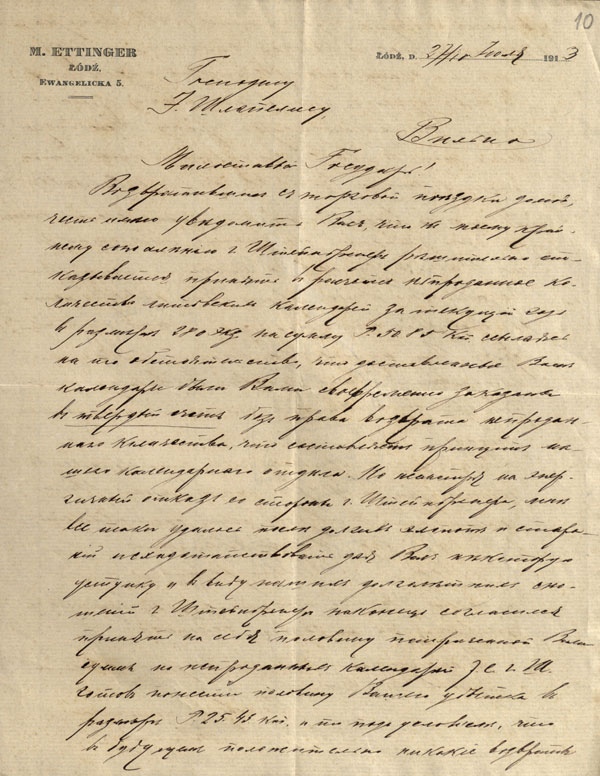 10
M. ETTINGER
ŁÓDŹ,
EWANGELICKA 5.
ŁÓDŹ, D. 27/10 Июля 1913
Господину
Э. Шлапелису,
Вильно
Милостивый Государь!
Возвратившись с торговой поездки домой,
честь имею уведомить Вас, что къ моему край-
нему сожаленью г. Штейнбреннеръ решительно от-
казывается принять непроданное ко-
личество литовскихъ календарей за текущий годъ
в размере 280 экз. на сумму Р. 50.85 Коп ссылаясь
на то обстоятельство, что доставленные Вамъ
календари были Вами своевременно заказаны
в твердый счетъ без права возврата непродан-
наго количества, что составляетъ принципъ на-
шего календарного отдела. Но несмотря на энер-
гичный отказъ со стороны г. Штейнбреннера, мне
все таки удалось после долгихъ хлопотъ и стара-
ний исходатайствовать для Васъ некоторую
уступку и в виду нашихъ долголетнихъ сно-
шений г. Штейнбреннеръ наконецъ согласился
принять на себя половину Вами
суммы по непроданнымъ календарямъ
готовъ понести половину Вашего убытка в
размере Р. 25.43 Коп. и то под условиемъ, что
в будущемъ положительно никакие возвраты